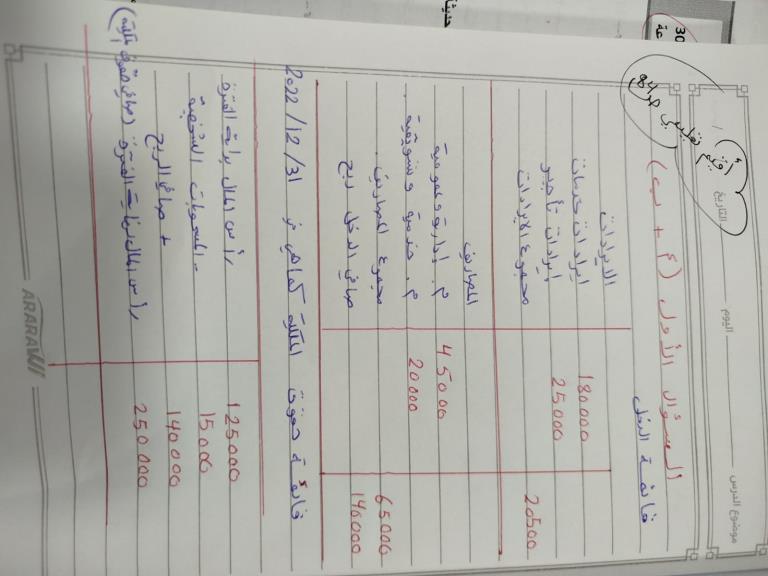 30
عة
اليوم
التاريخ
موضوع الدرس
السؤال الأول (أ + ب)
قائمة الدخل
الايرادات
ايرادات خدمات 180000
ايرادات تأجير 25000
مجموع الايرادات 20500
المصاريف
م. ادارية وعمومية 45000
م. خدمية وتسويقية 20000
مجموع المصاريف 65000
صافي الدخل ربح 140000
قائمة حقوق الملكية كما هي في 31/12/2022
رأس المال بداية الفترة 125000
- المسحوبات الشخصية 15000
+ صافي الربح 140000
رأس المال نهاية الفترة (صافي حقوق الملكية) 250000
ARARAWI